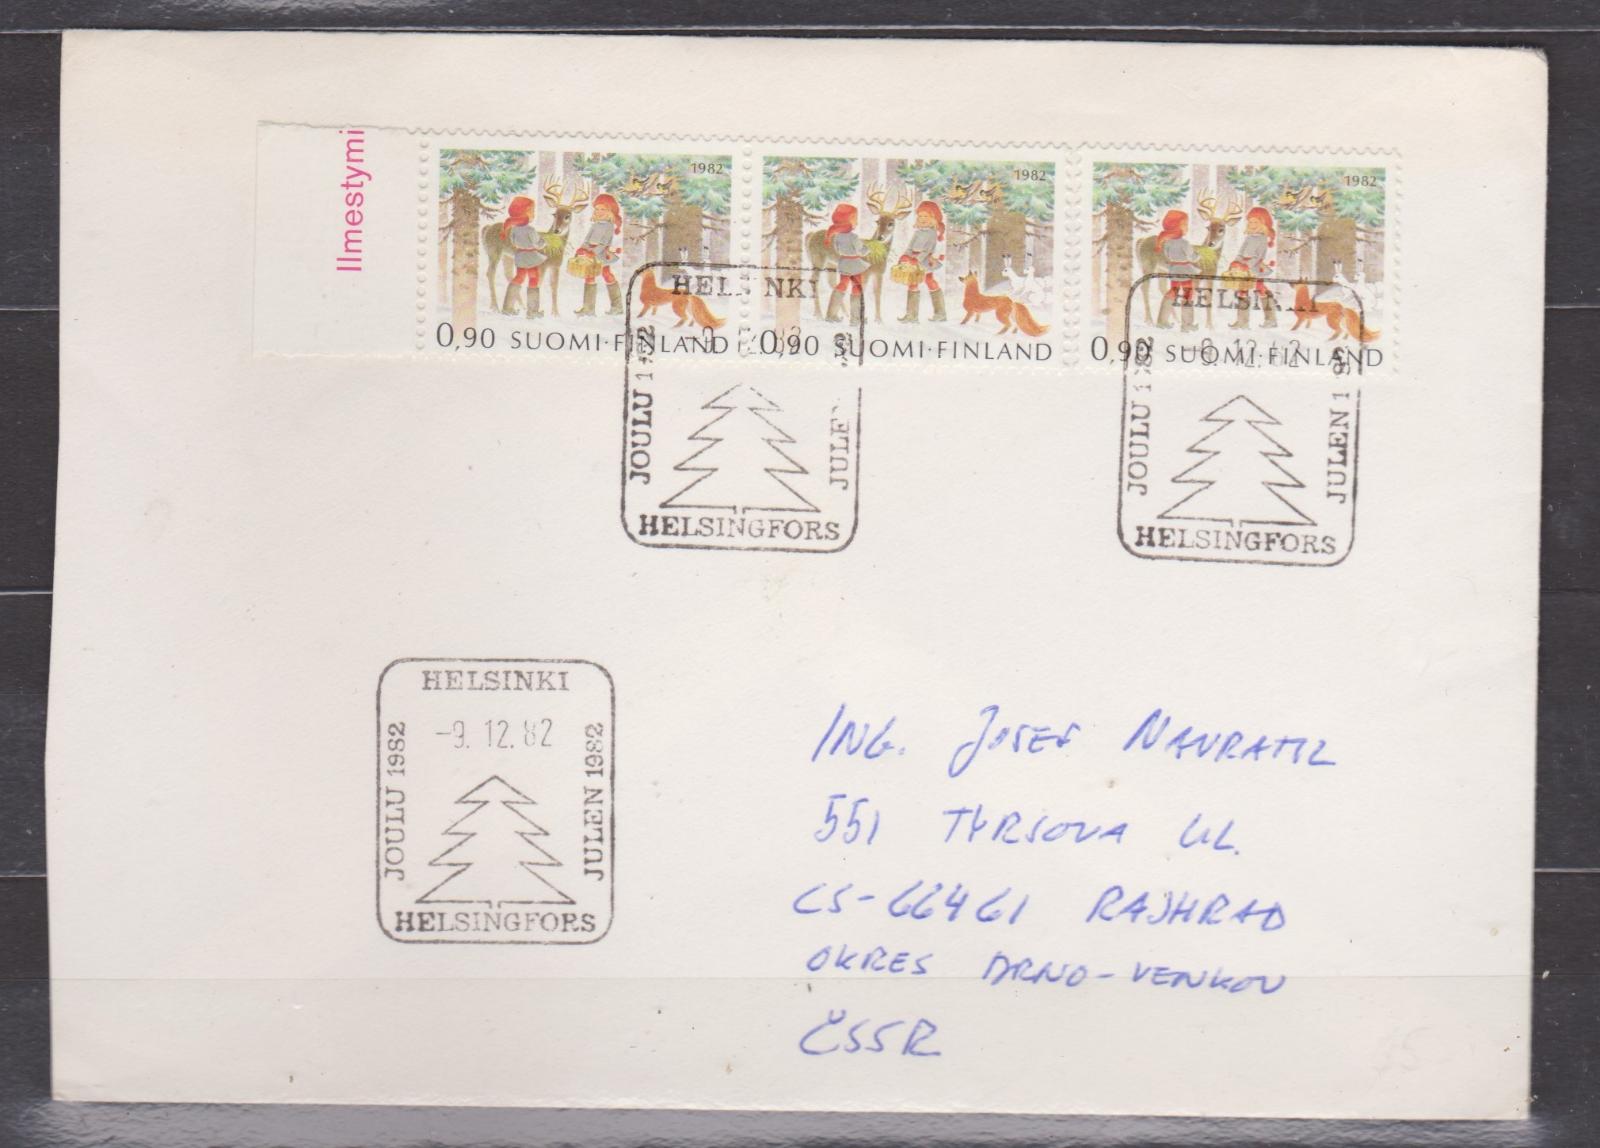 Ilmestymi
1982
1982
1982
0,90 SUOMI·FINLAND
0,90 SUOMI·FINLAND
0,90 SUOMI·FINLAND
HELSINKI
9. 12. 82
JOULU 1982
JULEN
HELSINGFORS
HELSINKI
-9. 12. 82
JOULU 1982
JULEN 1982
HELSINGFORS
HELSINKI
-9. 12. 82
JOULU 1982
JULEN 1982
HELSINGFORS
ING. JOSEF NAVRATIL
551 TYRSOVA UL.
CS-66461 RAJHRAD
OKRES BRNO-VENKOV
ČSSR